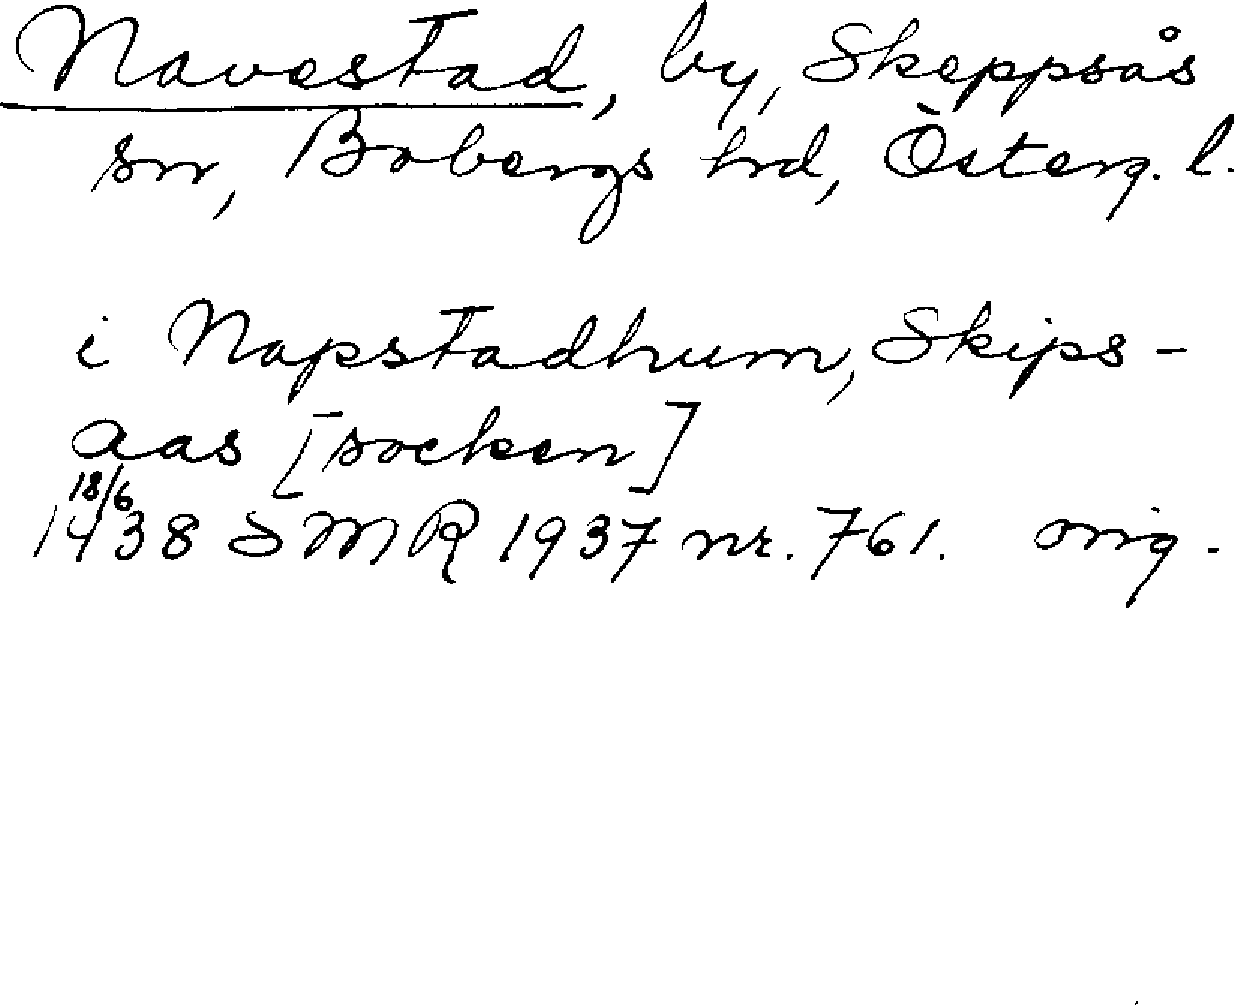 Navestad, by, Skeppsås
sn, Bobergs hd, Österg. l.
i Napstadhum, Skips-
aas [socken]
18/6
1438 SMR 1937 nr. 761. orig.